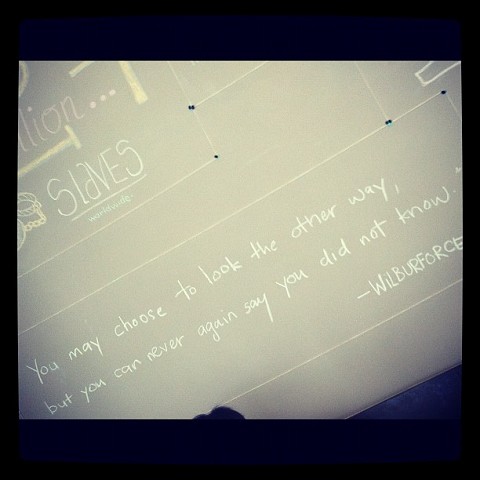 llion...
SLAVES
worldwide.
You may choose to look the other way,
but you can never again say you did not know."
-WILBURFORCE